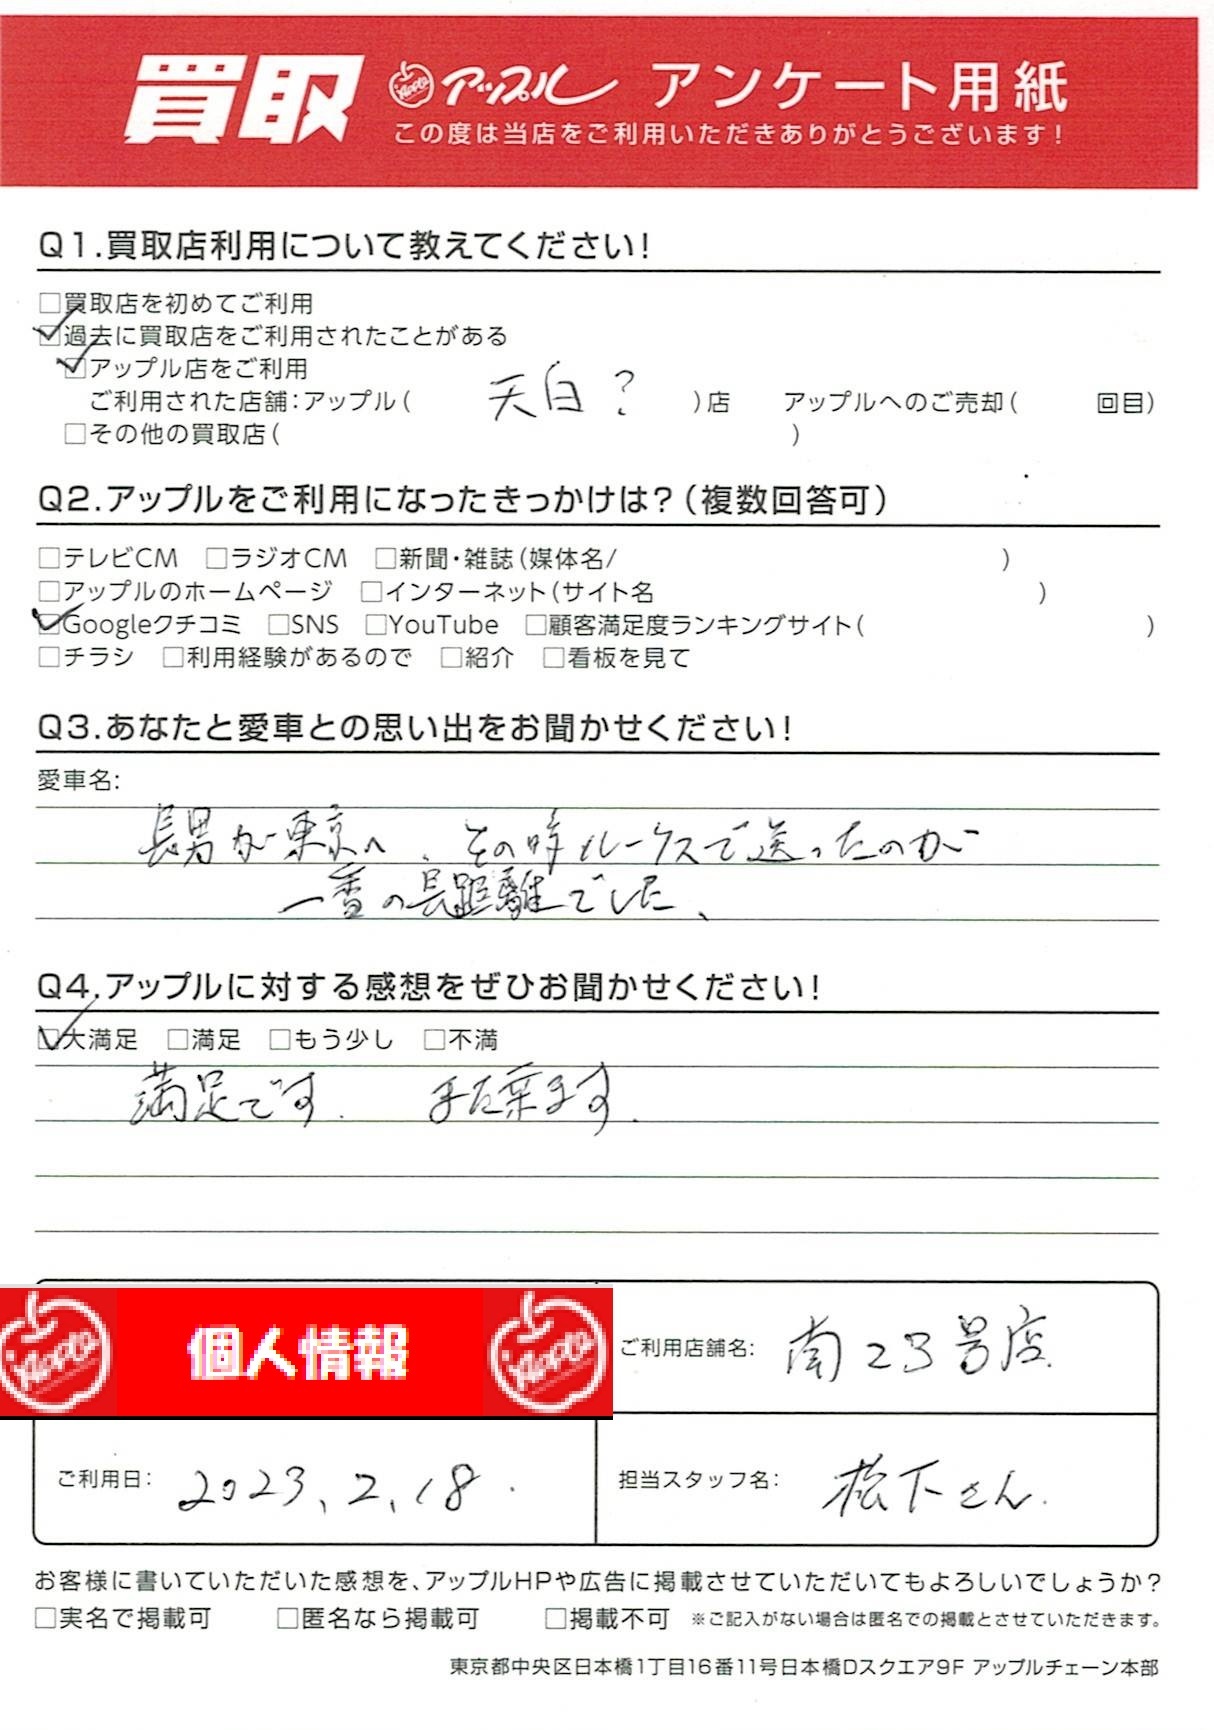 買取 アップル アンケート用紙
この度は当店をご利用いただきありがとうございます!
Q1.買取店利用について教えてください!
□買取店を初めてご利用
☑過去に買取店をご利用されたことがある
☑アップル店をご利用
ご利用された店舗:アップル( 天白? )店 アップルへのご売却( 回目)
□その他の買取店( )
Q2.アップルをご利用になったきっかけは?(複数回答可)
□テレビCM □ラジオCM □新聞・雑誌(媒体名/ )
□アップルのホームページ □インターネット(サイト名 )
☑Googleクチコミ □SNS □YouTube □顧客満足度ランキングサイト( )
□チラシ □利用経験があるので □紹介 □看板を見て
Q3.あなたと愛車との思い出をお聞かせください!
愛車名:
長男が東京へ、その時ルークスで送ったのが
一番の長距離でした、
Q4.アップルに対する感想をぜひお聞かせください!
☑大満足 □満足 □もう少し □不満
満足です. また来ます.
個人情報
ご利用店舗名: 南23号店
ご利用日: 2023、2、18.
担当スタッフ名: 松下さん.
お客様に書いていただいた感想を、アップルHPや広告に掲載させていただいてもよろしいでしょうか?
□実名で掲載可 □匿名なら掲載可 □掲載不可 ※ご記入がない場合は匿名での掲載とさせていただきます。
東京都中央区日本橋1丁目16番11号日本橋Dスクエア9F アップルチェーン本部